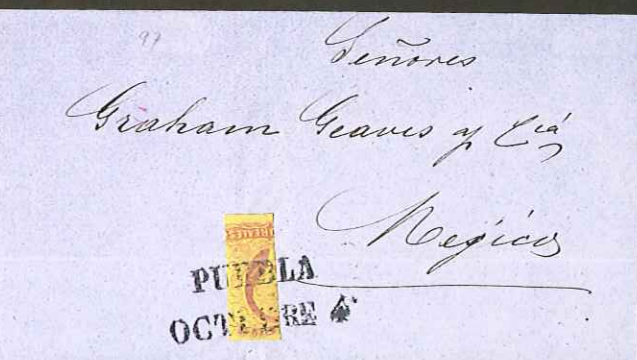 97
Señores
Graham Geaves y Cia
Megico
REALES
PUEBLA
OCTUBRE 4